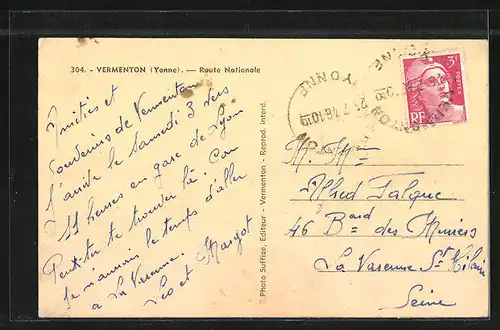 304. - VERMENTON (Yonne). — Route Nationale
Amitiés et
Souvenirs de Vermenton
J'arrive le Samedi 3 vers
11 heures en gare de Lyon
Peutetre te trouver là. Car
je n'aurais le temps d'aller
a La Varenne.
Léo et Margot
Photo Suffize, Editeur - Vermenton - Reprod. interd.
YONNE
3F
POSTES
RF
M. Mme
Alfred
46 Bard des Muriers
La Varenne St Hilaire
Seine